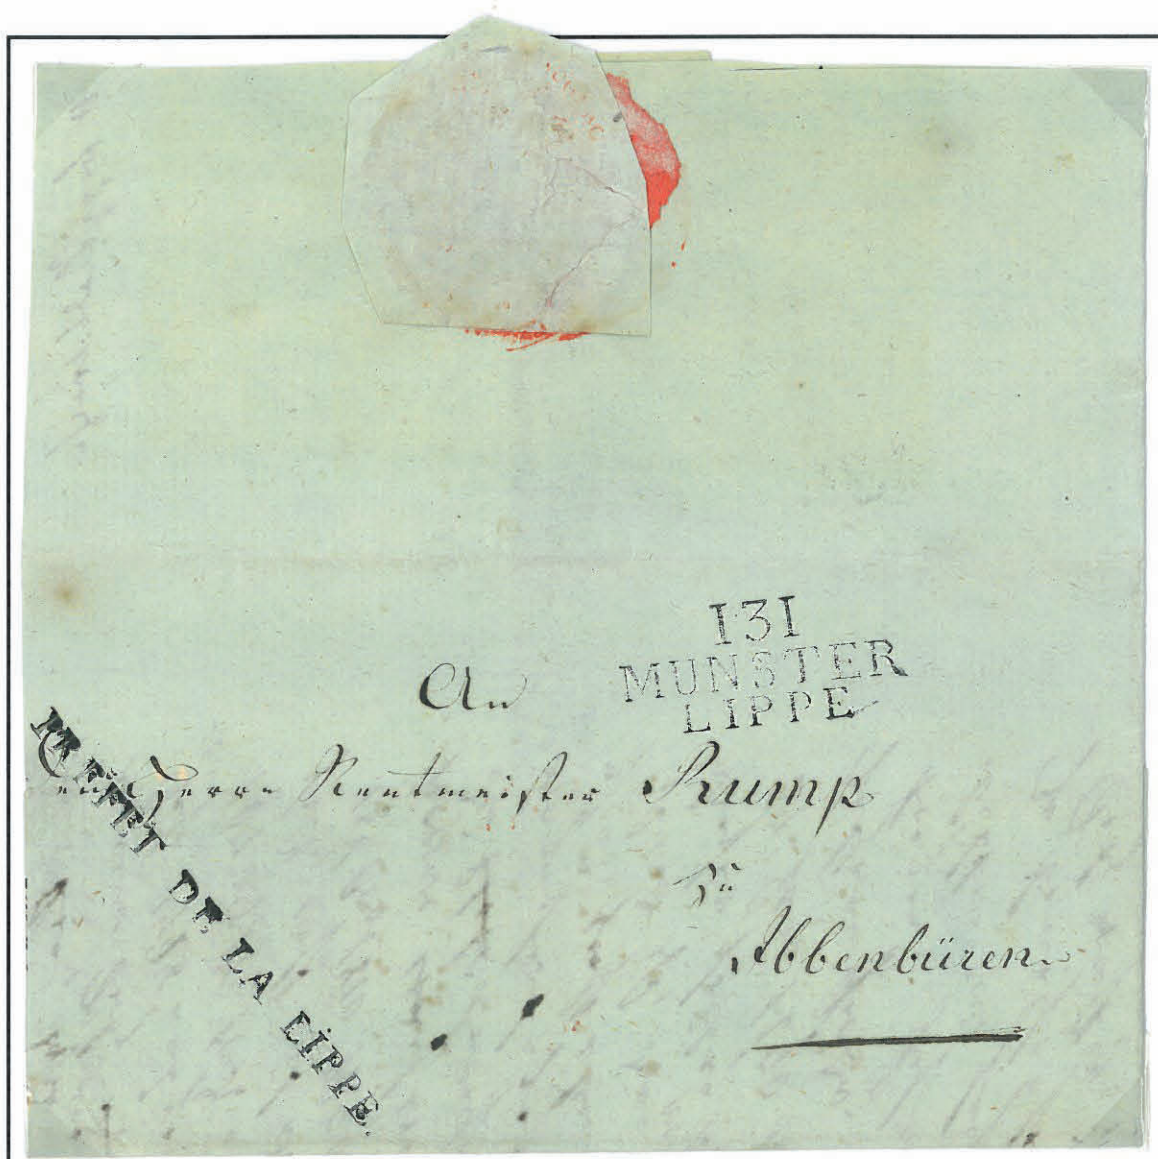 131
MUNSTER
LIPPE
An
den Herrn Rentmeister Rump
zu
Ibbenbüren
PREFET DE LA LIPPE.